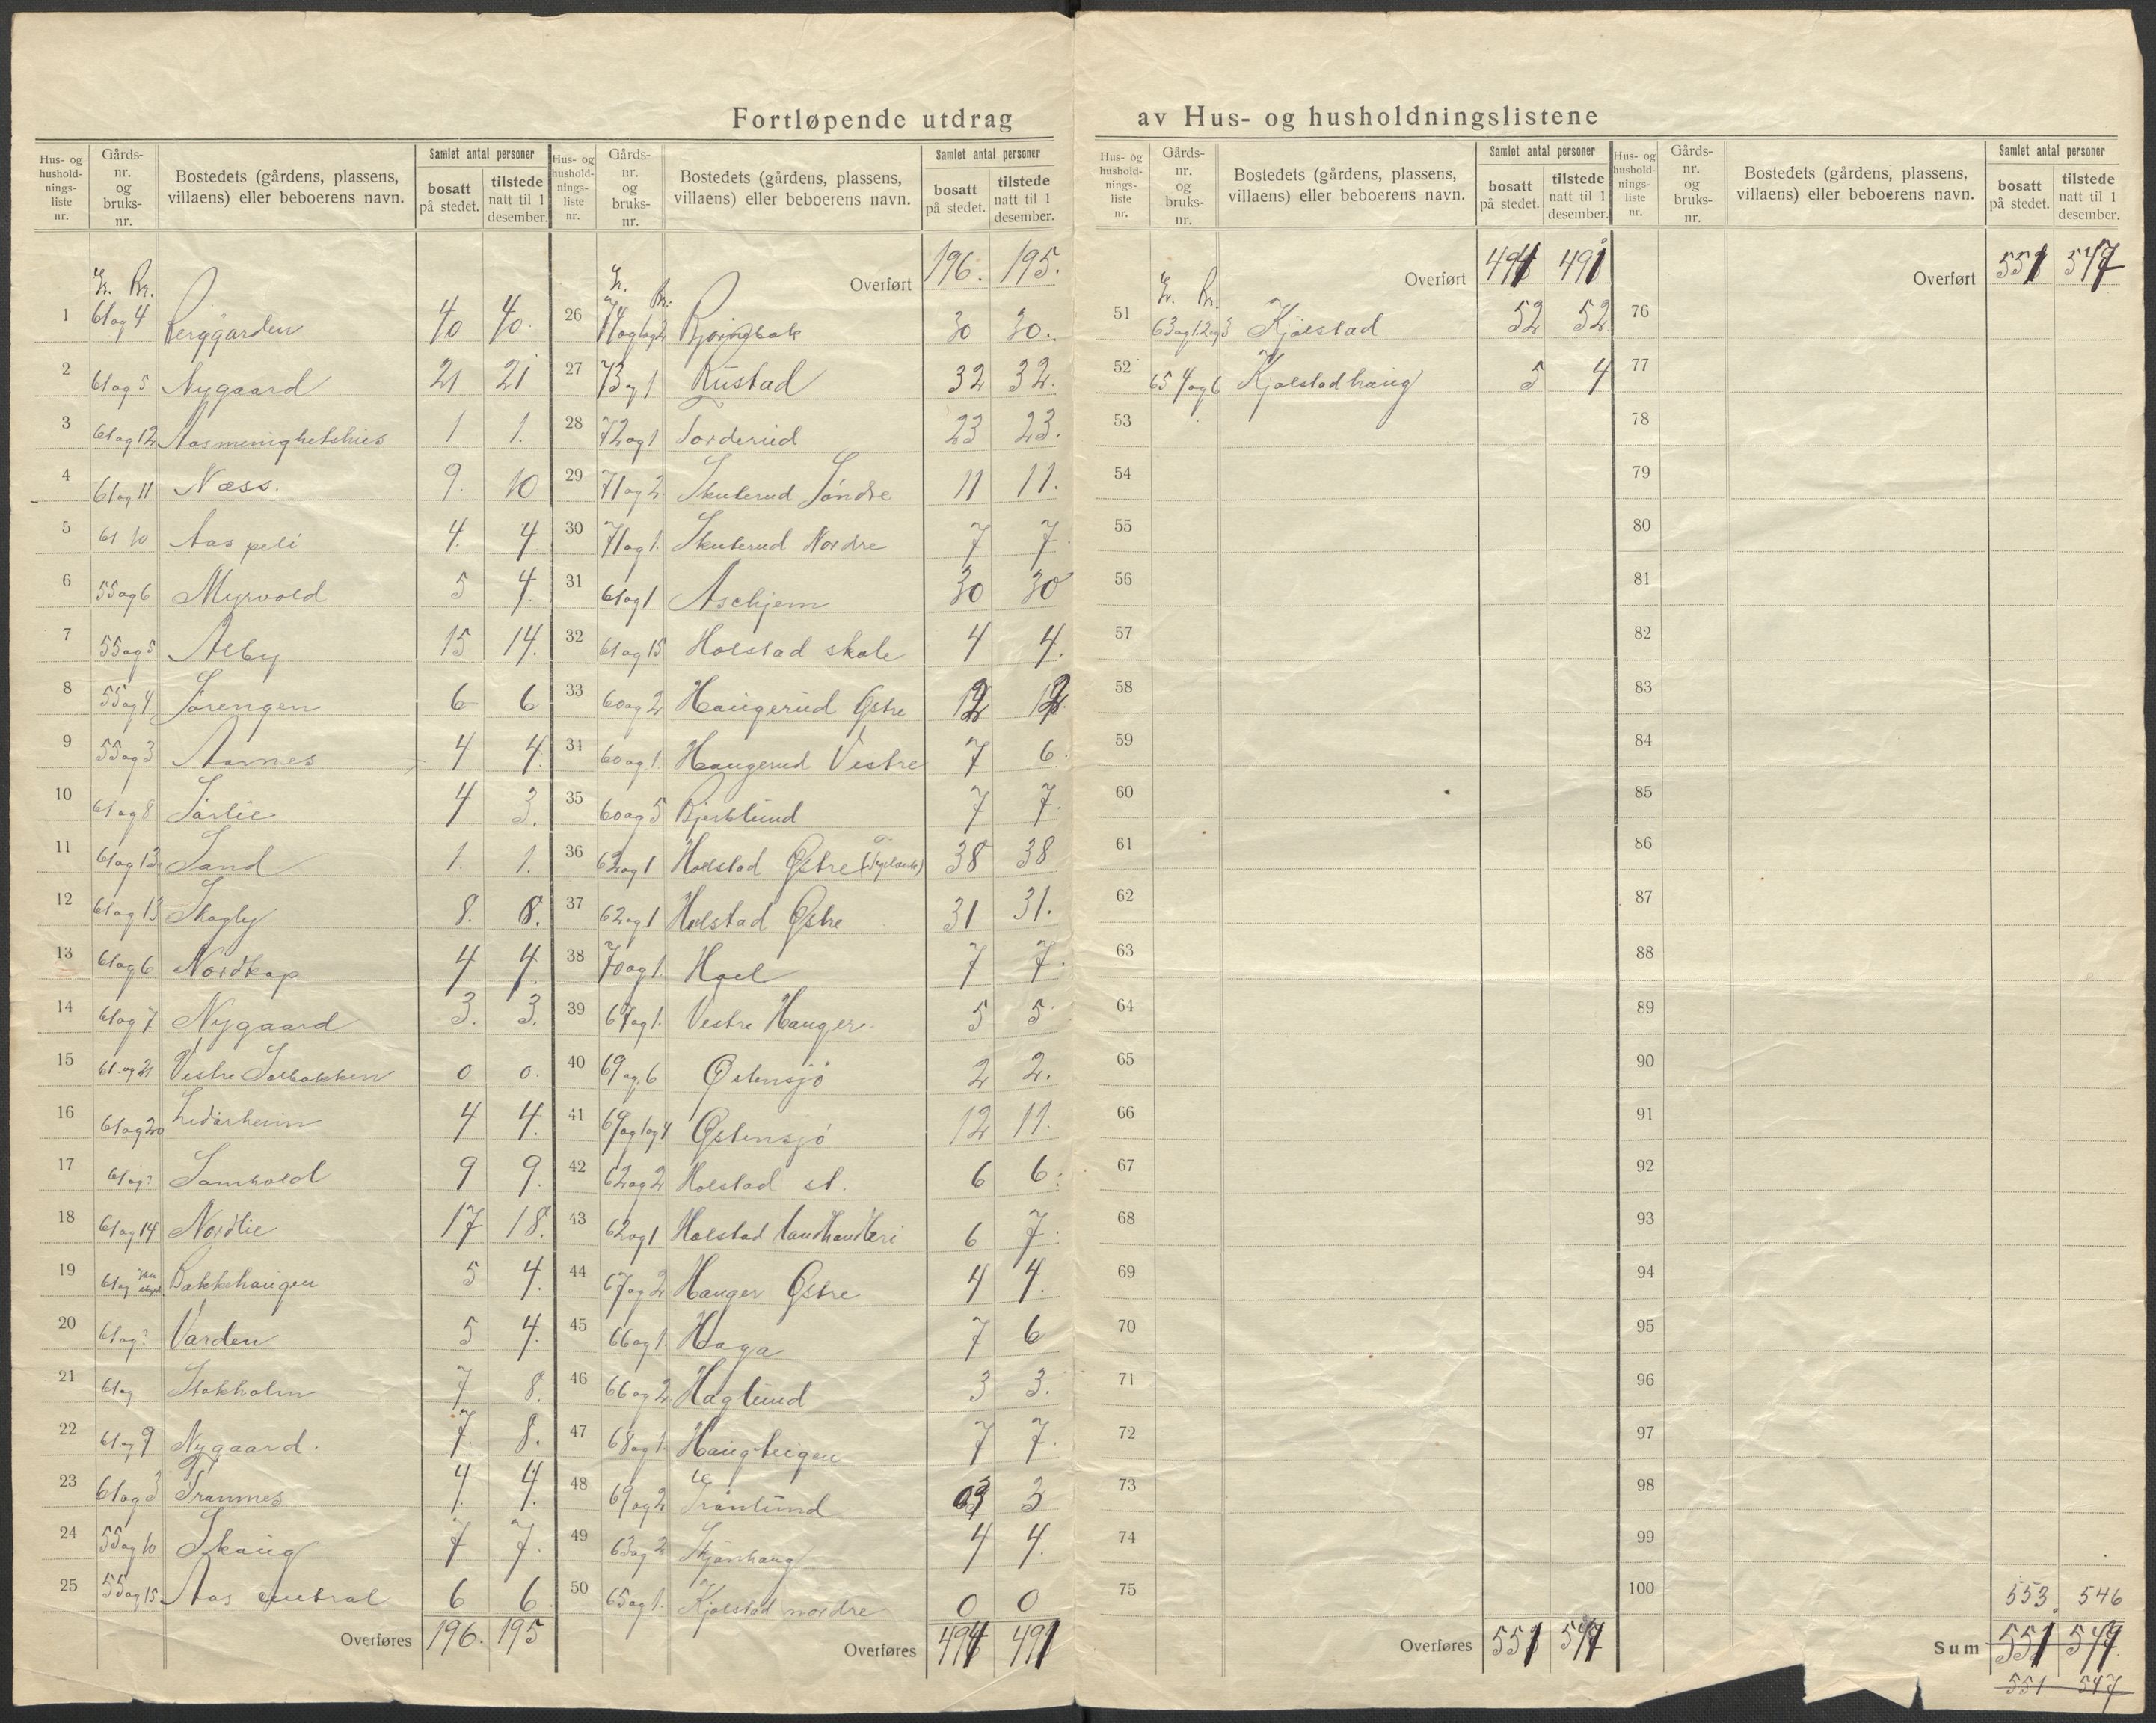 Fortløpende utdrag av Hus- og husholdningslistene
Hus- og husholdnings-liste nr. | Gårds-nr. og bruks-nr. | Bostedets (gårdens, plassens, villaens) eller beboerens navn. | Samlet antal personer bosatt på stedet. | tilstede natt til 1 desember.
Gr. Br.
1 61 og 4 Berggarden 40 40.
2 61 og 5 Nygaard 21 21
3 61 og 12 Aasmenighetshus 1 1.
4 61 og 11 Næss. 9. 10
5 61 10 Aas peli 4. 4
6 55 og 6 Myrvold 5 4.
7 55 og 5 Alby 15 14.
8 55 og 4. Sørengen 6 6
9 55 og 3 Aarnes 4 4.
10 61 og 8 Sørlie 4 3.
11 61 og 13 Sand 1. 1.
12 61 og 13 Skogly 8. 8.
13 61 og 6 Nordkap 4 4.
14 61 og 7 Nygaard 3. 3.
15 61. og 21 Vestre Solbakken 0 0.
16 61 og 20 4 4.
17 61 og ? Samhold 9 9.
18 61 og 14 Nordlie 17 18.
19 61 og Bakkehaugen 5 4.
20 61 og ? Varden 5 4.
21 61 og Stokholm 7 8.
22 61 og 9 Nygaard. 7. 8.
23 61 og 3 Tramnes 4. 4.
24 55 og 10 Skaug 7 7.
25 55 og 15 Aas central 6 6
Overføres 196. 195
Hus- og husholdnings-liste nr. | Gårds-nr. og bruks-nr. | Bostedets (gårdens, plassens, villaens) eller beboerens navn. | Samlet antal personer bosatt på stedet. | tilstede natt til 1 desember.
Overført 196. 195.
Gr. Br.
26 74 og 1 og 2 30 30.
27 73 og 1 Rustad 32 32.
28 72 og 1 Torderud 23 23.
29 71 og 2 Skuterud Søndre 11 11.
30 71 og 1. Skuterud Nordre 7 7.
31 61 og 1 Aschjem 30 30
32 61 og 15 Holstad skole 4 4.
33 60 og 2 Haugerud Østre 12 12.
34 60 og 1. Haugerud Vestre 7 6.
35 60 og 5 Bjerklund 7 7.
36 62 og 1 Holstad Østre 38 38
37 62 og 1 Holstad Østre 31 31.
38 70 og 1. Hoel 7 7.
39 67 og 1. Vestre Hauger. 5 5
40 69 og 6 Østensjø 2 2.
41 69 og 1 og 4 Østensjø 12 11.
42 62 og 2 Holstad st. 6 6.
43 62 og 1 Holstad landhandleri 6 7.
44 67 og 2 Hauger Østre 4 4.
45 66 og 1. Haga 7 6
46 66 og 2 Haglund 3 3.
47 68 og 1. Haugteigen 7 7.
48 69 og 2 Grønlund 3 3
49 63 og 2 Skjønhaug 4 4.
50 65 og 1. Kjølstad nordre 0 0
Overføres 494 491
Hus- og husholdnings-liste nr. | Gårds-nr. og bruks-nr. | Bostedets (gårdens, plassens, villaens) eller beboerens navn. | Samlet antal personer bosatt på stedet. | tilstede natt til 1 desember.
Overført 494 491
Gr. Br.
51 63 og 1. 2 og 3 Kjølstad 52 52
52 65 4 og 6 Kjølstadhaug 5 4
53
54
55
56
57
58
59
60
61
62
63
64
65
66
67
68
69
70
71
72
73
74
75
Overføres 551 547
Hus- og husholdnings-liste nr. | Gårds-nr. og bruks-nr. | Bostedets (gårdens, plassens, villaens) eller beboerens navn. | Samlet antal personer bosatt på stedet. | tilstede natt til 1 desember.
Overført 551 547
76
77
78
79
80
81
82
83
84
85
86
87
88
89
90
91
92
93
94
95
96
97
98
99
100 553. 546
Sum 551 547.
551 547